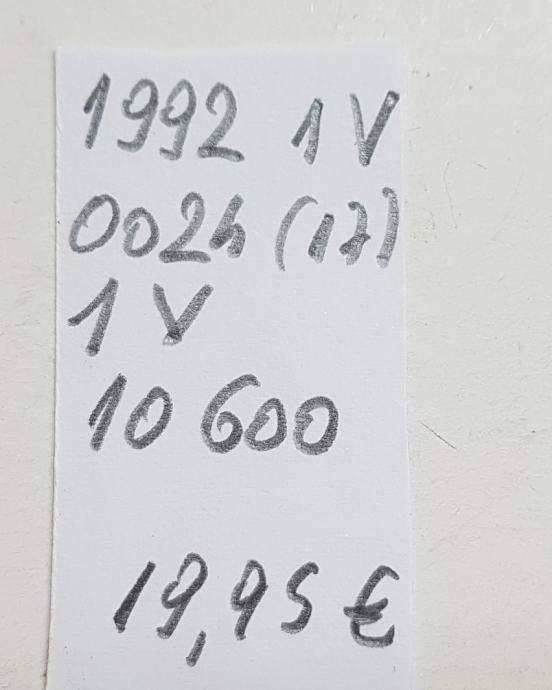 1992 1 V
0024 (17)
1 V
10 600
19,95 €